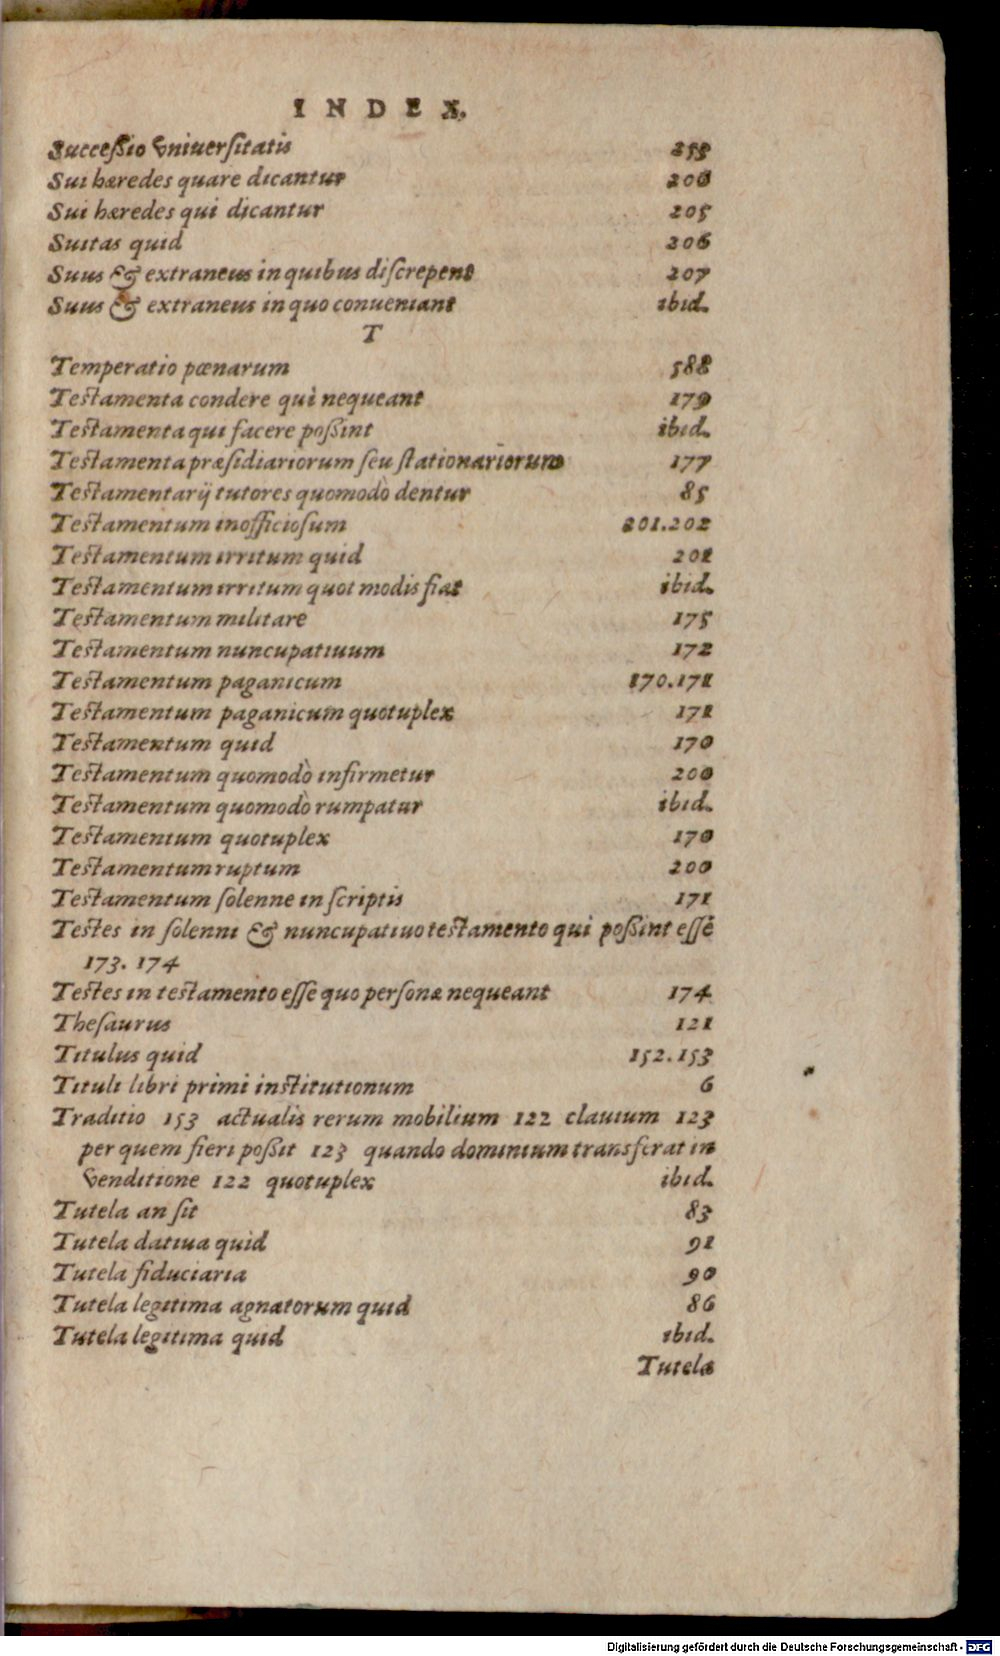 INDEX.
Succeſsio vniuerſitatis 253
Sui hæredes quare dicantur 206
Sui hæredes qui dicantur 205
Suitas quid 206
Suus & extraneus in quibus diſcrepent 207
Suus & extraneus in quo conueniant ibid.
T
Temperatio pœnarum 588
Testamenta condere qui nequeant 179
Testamenta qui facere poſsint ibid.
Testamenta præſidiariorum ſeu ſtationariorum 177
Testamentarij tutores quomodò dentur 85
Testamentum inofficioſum 201.202
Testamentum irritum quid 201
Testamentum irritum quot modis fiat ibid.
Testamentum militare 175
Testamentum nuncupatiuum 172
Testamentum paganicum 170.171
Testamentum paganicum quotuplex 171
Testamentum quid 170
Testamentum quomodò infirmetur 200
Testamentum quomodò rumpatur ibid.
Testamentum quotuplex 170
Testamentum ruptum 200
Testamentum ſolenne in ſcriptis 171
Testes in ſolenni & nuncupatiuo testamento qui poſsint eſſe
173. 174
Testes in testamento eſſe quo perſonæ nequeant 174
Theſaurus 121
Titulus quid 152.153
Tituli libri primi institutionum 6
Traditio 153 actualis rerum mobilium 122 clauium 123
per quem fieri poſsit 123 quando dominium transferat in
venditione 122 quotuplex ibid.
Tutela an ſit 83
Tutela datiua quid 91
Tutela fiduciaria 90
Tutela legitima agnatorum quid 86
Tutela legitima quid ibid.
Tutela
Digitalisierung gefördert durch die Deutsche Forschungsgemeinschaft - DFG